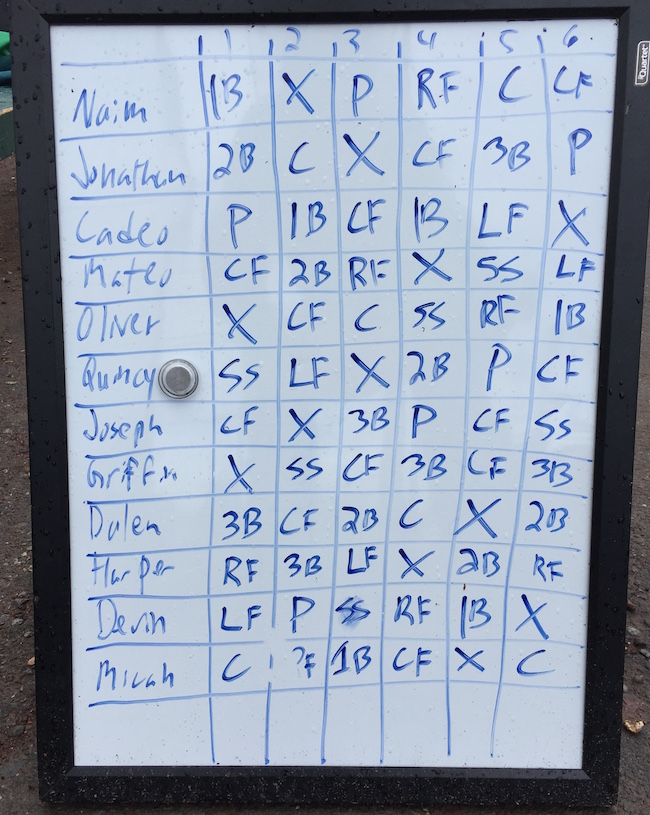 1 2 3 4 5 6
Naim 1B X P RF C CF
Jonathan 2B C X CF 3B P
Cadeo P 1B CF 1B LF X
Mateo CF 2B RF X SS LF
Oliver X CF C SS RF 1B
Quincy SS LF X 2B P CF
Joseph CF X 3B P CF SS
Griffin X SS CF 3B CF 3B
Dalen 3B CF 2B C X 2B
Harper RF 3B LF X 2B RF
Devin LF P SS RF 1B X
Micah C 1B CF X C
Quartet